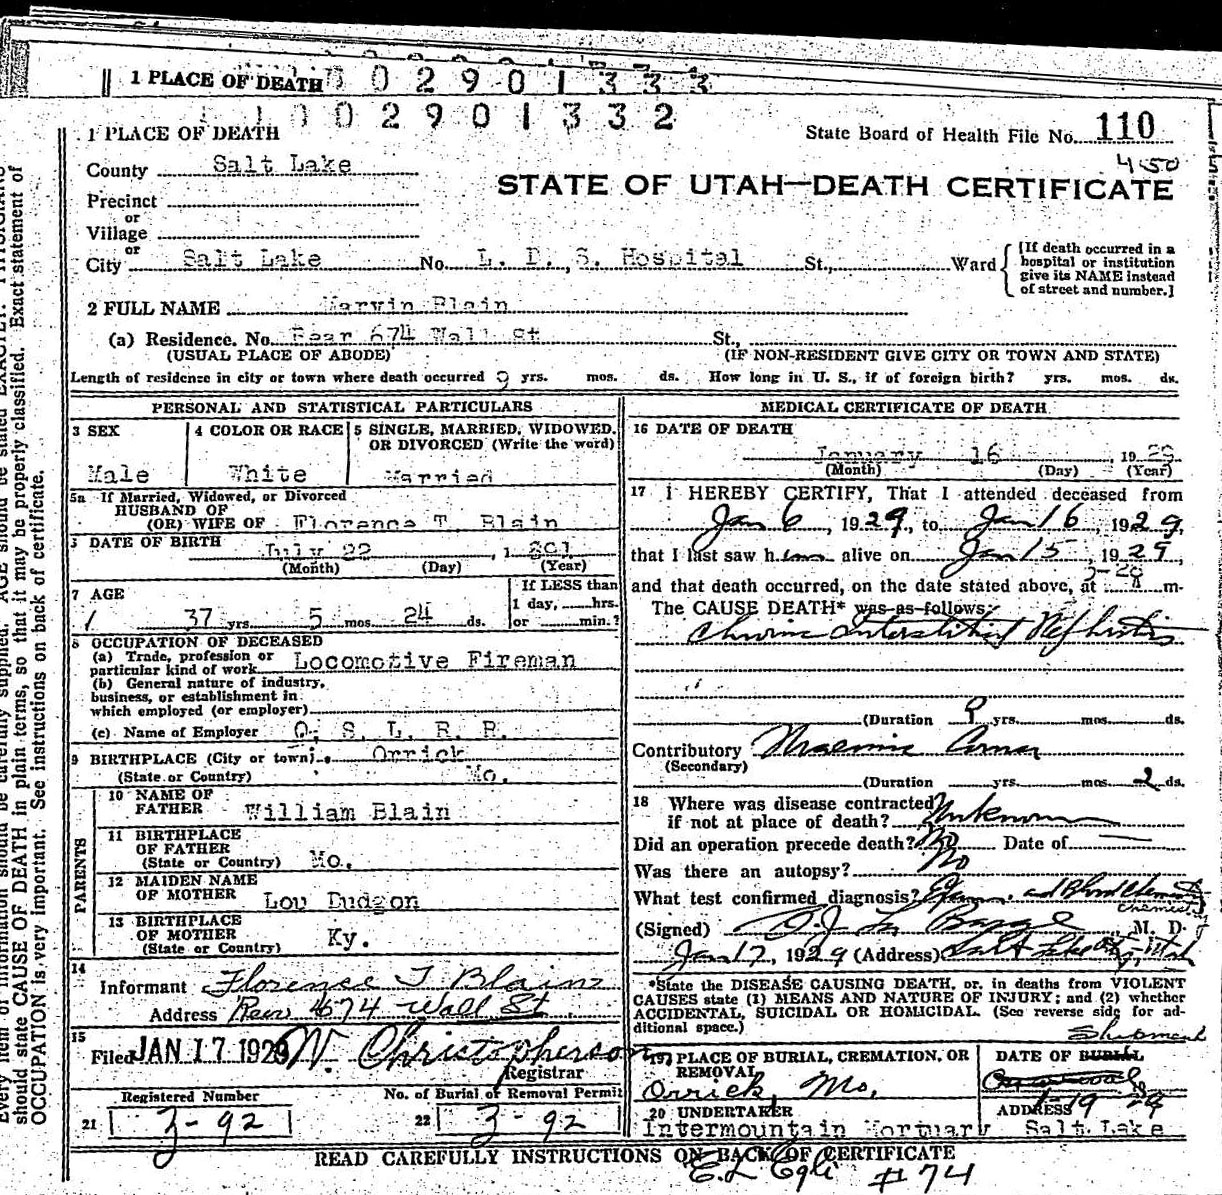 1 PLACE OF DEATH 0 2 9 0 1 3 3 3
1 0 0 2 9 0 1 3 3 2
1 PLACE OF DEATH
State Board of Health File No. 110
4-50
County Salt Lake
STATE OF UTAH—DEATH CERTIFICATE
Precinct
or
Village
or
City Salt Lake No. L. D. S. Hospital St., Ward
[If death occurred in a hospital or institution give its NAME instead of street and number.]
2 FULL NAME Marvin Blain
(a) Residence. No. Rear 674 Wall St St.,
(USUAL PLACE OF ABODE) (IF NON-RESIDENT GIVE CITY OR TOWN AND STATE)
Length of residence in city or town where death occurred 9 yrs. mos. ds. How long in U. S., if of foreign birth? yrs. mos. ds.
PERSONAL AND STATISTICAL PARTICULARS
3 SEX 4 COLOR OR RACE 5 SINGLE, MARRIED, WIDOWED,
OR DIVORCED (Write the word)
Male White Married
5a If Married, Widowed, or Divorced
HUSBAND OF
(OR) WIFE OF Florence T. Blain
DATE OF BIRTH July 22, 1 891
(Month) (Day) (Year)
7 AGE If LESS than
1 day, hrs.
37 yrs. 5 mos. 24 ds. or min.?
8 OCCUPATION OF DECEASED
(a) Trade, profession or
particular kind of work Locomotive Fireman
(b) General nature of industry,
business, or establishment in
which employed (or employer)
(c) Name of Employer O. S. L. R. R.
9 BIRTHPLACE (City or town) Orrick
(State or Country) Mo.
PARENTS
10 NAME OF
FATHER William Blain
11 BIRTHPLACE
OF FATHER
(State or Country) Mo.
12 MAIDEN NAME
OF MOTHER Lou Dudgon
13 BIRTHPLACE
OF MOTHER
(State or Country) Ky.
14
Informant Florence T Blain
Address Rear 674 Wall St.
15
Filed JAN 17 1929 W. Christopherson
Registrar
Registered Number No. of Burial or Removal Permit
21 3-92 22 3-92
MEDICAL CERTIFICATE OF DEATH
16 DATE OF DEATH
January 16, 1929
(Month) (Day) (Year)
17 I HEREBY CERTIFY, That I attended deceased from
Jan 6, 1929, to Jan 16, 1929,
that I last saw him alive on Jan 15, 1929,
and that death occurred, on the date stated above, at m.
The CAUSE DEATH* was as follows:
Chronic Interstitial Nephritis
(Duration 9 yrs. mos. ds.
Contributory Uraemic Coma
(Secondary)
(Duration yrs. mos. 2 ds.
18 Where was disease contracted
if not at place of death? Unknown
Did an operation precede death? No Date of —
Was there an autopsy? No
What test confirmed diagnosis? and Blood Chemistry
Chemist
(Signed) M. D.
Jan 17, 1929 (Address) Salt Lake City, Utah
*State the DISEASE CAUSING DEATH, or, in deaths from VIOLENT
CAUSES state (1) MEANS AND NATURE OF INJURY; and (2) whether
ACCIDENTAL, SUICIDAL OR HOMICIDAL. (See reverse side for ad-
ditional space.)
Shipment
19 PLACE OF BURIAL, CREMATION, OR
REMOVAL
Orrick, Mo.
DATE OF BURIAL
1-19 29
20 UNDERTAKER ADDRESS
Intermountain Mortuary Salt Lake
READ CAREFULLY INSTRUCTIONS ON BACK OF CERTIFICATE
E. L. Egli #74
should state CAUSE OF DEATH in plain terms, so that it may be properly classified. Exact statement of
OCCUPATION is very important. See instructions on back of certificate.